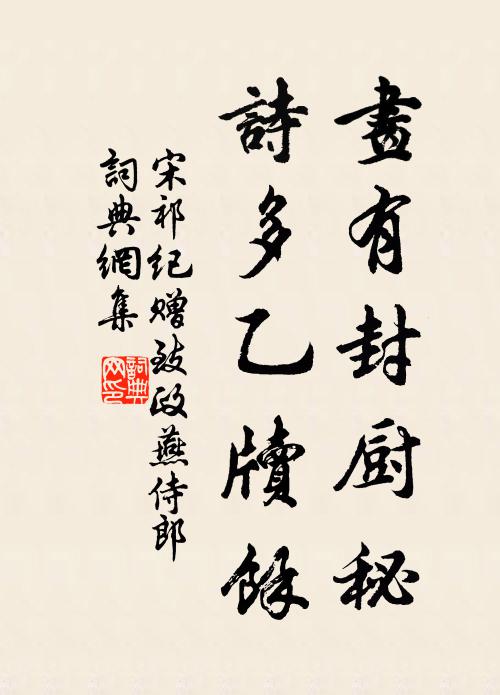 畫有封厨秘
詩多乙牘餘
宋祁紀贈致政燕侍郎
詞典網集
詞典
网印